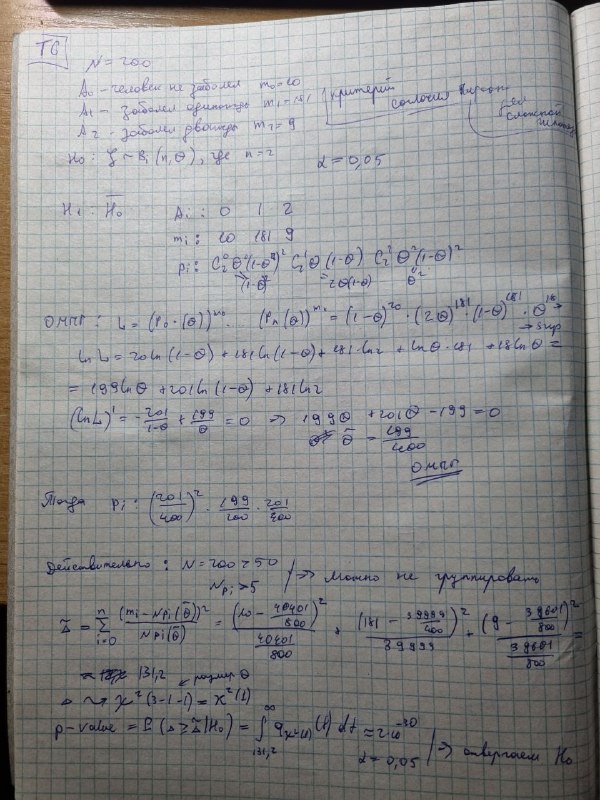 Т6
N = 200
A₀ – человек не заболел m₀ = 10
A₁ – заболел однажды m₁ = 181
A₂ – заболел дважды m₂ = 9
критерий согласия Пирсона
для сложной гипотезы
H₀: ξ ~ Bi(n, θ), где n = 2 α = 0,05
H₁: H̅₀ Ai: 0 1 2
mi: 10 181 9
pi: C₂⁰ θ⁰(1-θ)² C₂¹ θ(1-θ) C₂² θ²(1-θ)²
(1-θ)² =2θ(1-θ) θ²
ОМПГ: L = (P₀·(θ))^m₀ · (Pₙ(θ))^mₙ = (1-θ)²⁰ · (2θ)¹⁸¹ · (1-θ)¹⁸¹ · θ¹⁸ → sup
ln L = 20ln(1-θ) + 181ln(1-θ) + 181·ln2 + lnθ·181 + 18lnθ =
= 199lnθ + 201ln(1-θ) + 181ln2
(ln L)' = -201/(1-θ) + 199/θ = 0 ⇒ 199θ + 201θ - 199 = 0
θ̃ = 199/400
ОМПГ
Тогда pi: (201/400)² · 199/200 · 201/400
Действительно: N = 200 > 50
Npi > 5 ⇒ можно не группировать
Δ̃ = Σ_{i=0}^{n} (mi - Npi(θ̃))²/Npi(θ̃) = (10 - 40401/800)²/(40401/800) + (181 - 39999/400)²/39999 + (9 - 39601/800)²/(39601/800) =
≈ 131,2 размер θ
Δ ⇝ χ²(3-1-1) = χ²(1)
p-value = P(Δ ≥ Δ̃|H₀) = ∫_{131,2}^{∞} q_{χ²(1)}(t) dt ≈ 2·10⁻³⁰
α = 0,05 ⇒ отвергаем H₀